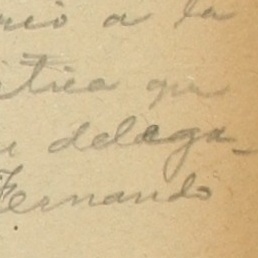 rio a la
itica que
u delega-
Fernando